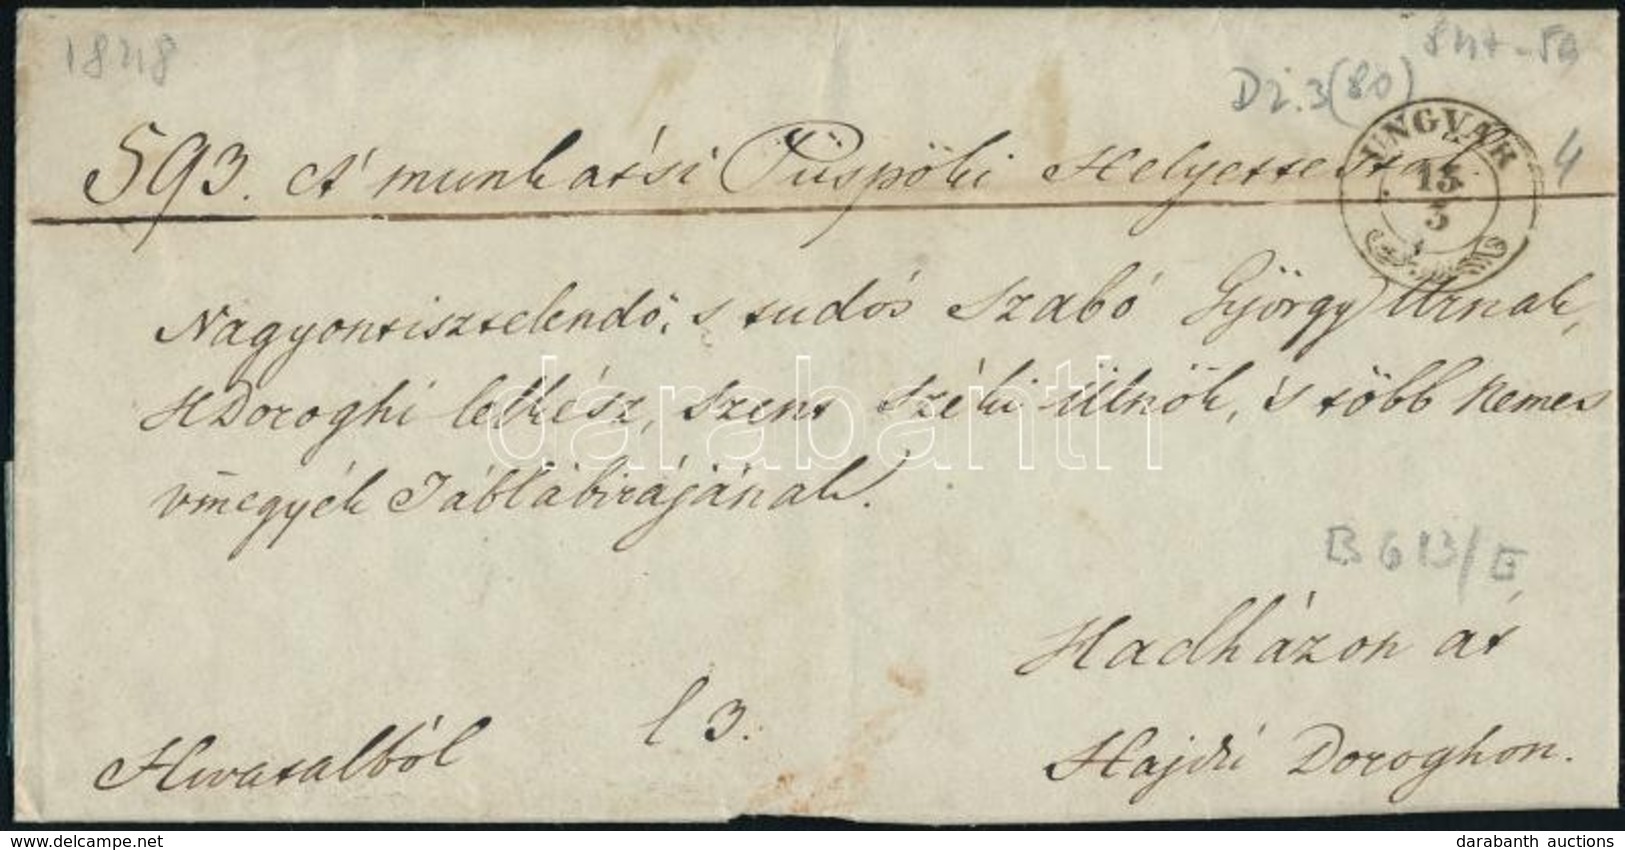 1848
847-50
Dz.3(80)
593. A' munkatsi Püspöki Helyettestől.
UNGVÁR
13
3
4
Nagyontisztelendő, s tudós Szabó György Urnak,
HDoroghi lelkész, szent széki ülnök, 's több Nemes
vmegyék Táblabirájának.
darabanth
B 613/E
Hadházon át
l 3.
Hivatalból
Hajdú Doroghon.
www.delcampe.net
darabanth auctions